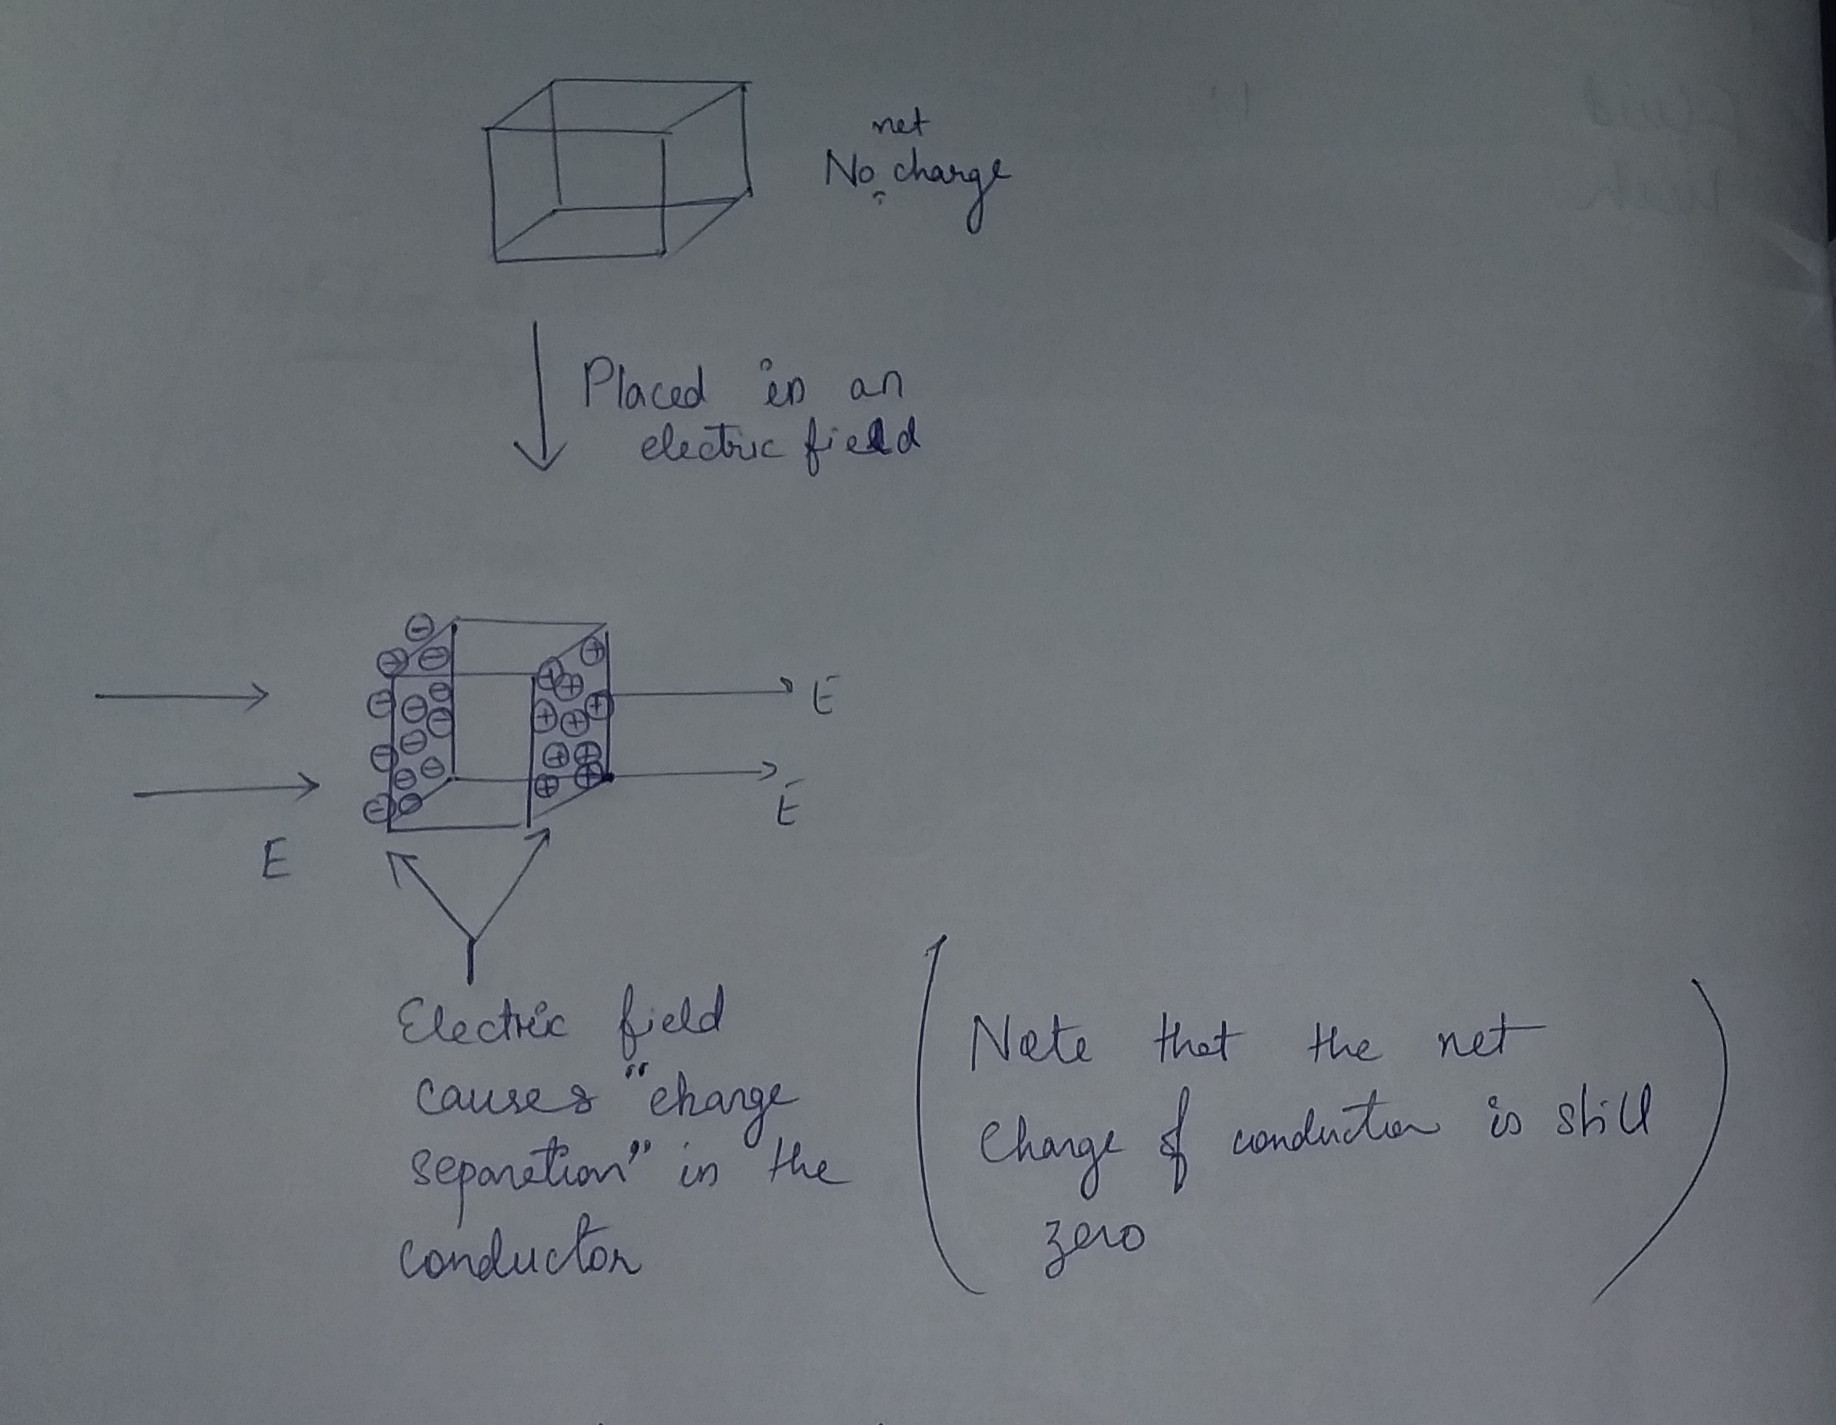 net
No charge
Placed in an
electric field
E
E
E
Electric field
causes "charge
separation" in the
conductor
Note that the net
Charge of conductor is still
zero